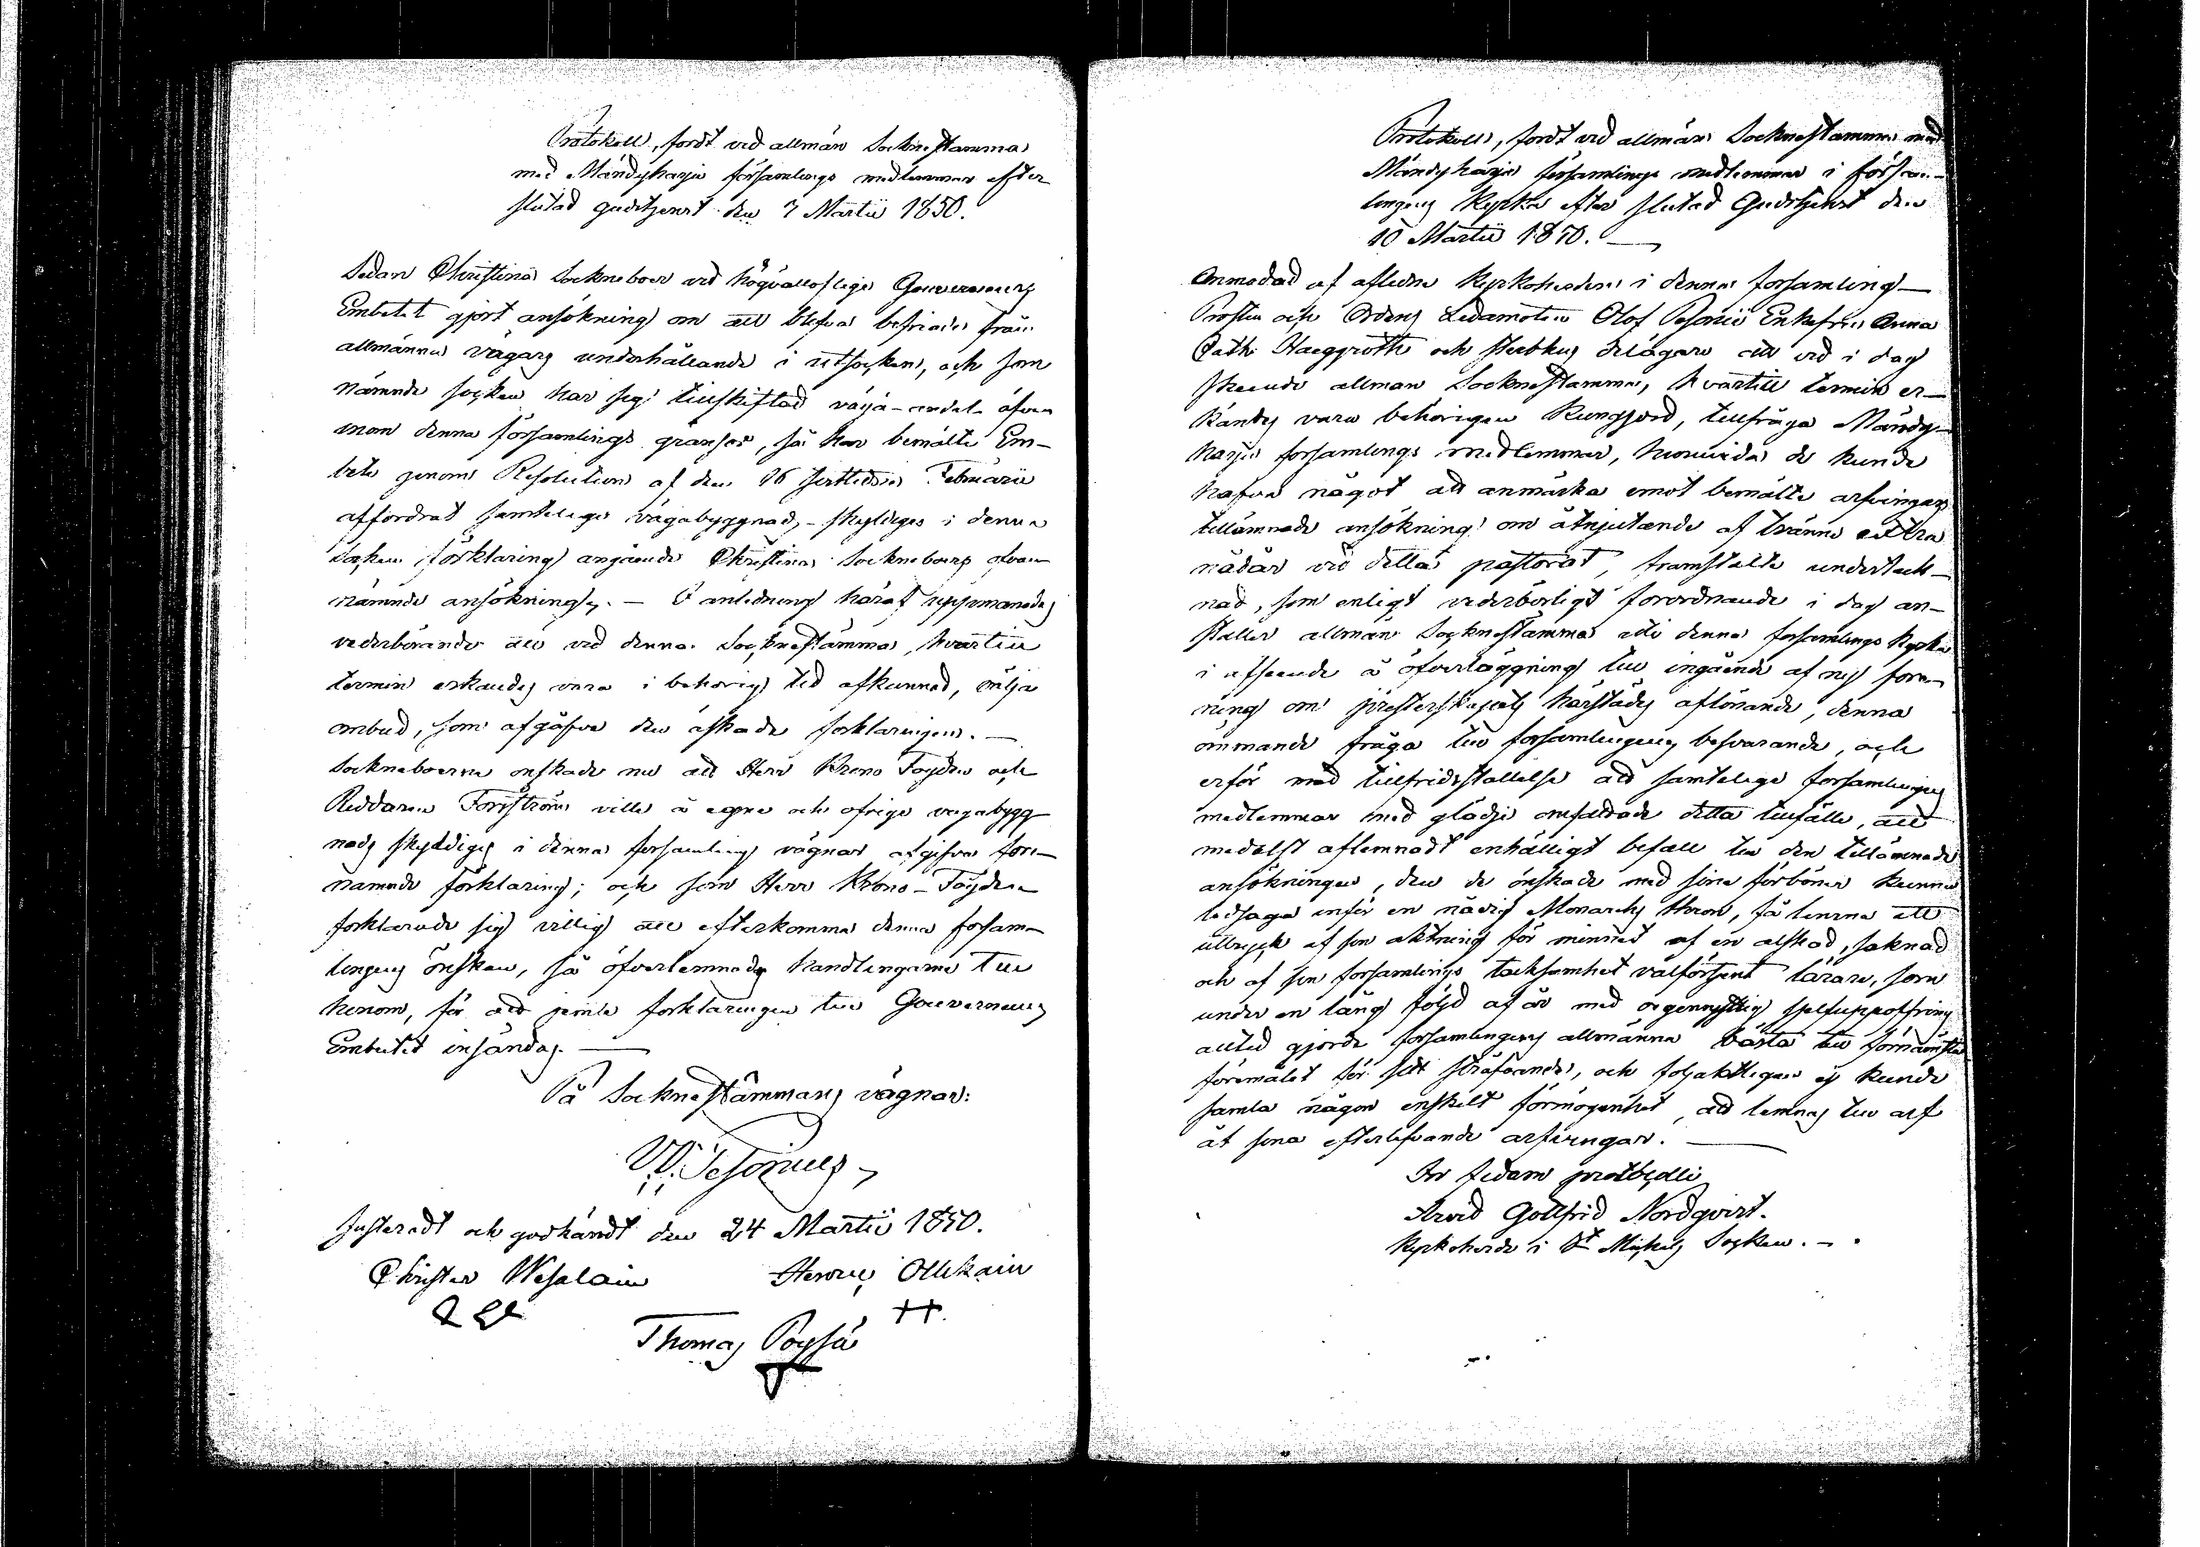 Protokoll, fördt vid allmän Socknestämma
med Mändyharju församlings medlemmar efter
slutad gudstjenst den 7 Martii 1850.
Sedan Christina Sockneboer vid högvällofliga Gouverneurs
Embetet gjort ansökning om att blefva befriade från
allmänna vägars underhållande i utsocknar, och som
nämnde socken har sig tillskiftad väga-andelar äfven
inom denna församlings gränsor, så har bemälte Em-
bete genom Resolution af den 16 sistledne Februarii
affordrat samtelige vägabyggnads-skyldige i denna
Socken förklaring angående Christina Sockneboers ofvan
nämnde ansökning. - I anledning häraf uppmanades
vederbörande att vid denna Sockneståmma, hvartill
termin erkändes vara i behörig tid afkunnad, välja
ombud, som afgåfve den äskade förklaringen. -
Sockneboerne önskade nu att Herr Krono Fogden och
Riddaren Forsström ville å egne och öfrige vägabygg
nads skyldiges i denna församling vägnar afgifva före-
nämnde förklaring; och som Herr Krono-Fogden
förklarade sig villig att efterkomma denna försam-
lingens önskan, så öfverlemnades handlingarne till
honom, för att jemte förklaringen till Gouverneurs
Embetet insändas. -
På Sockneståmmans vägnar:
W. Pesonius
Justeradt och godkändt den 24 Martii 1850.
Christer Wesalain Henric Ollikain
Thomas Pöyhiä
Protokoll, fördt vid allmän Sockneståmma med
Mändyharju församlings medlemmar i försam-
lingens Kyrka efter slutad Gudstjenst den
10 Martii 1850. -
Anmodad af aflidne Kyrkoherden i denna församling -
Prosten och Ordens Ledamoten Olof Pesonii Enkefru Anna
Cath: Haeggroth och sterbhus delägare att vid i dag
skeende allmän Sockneståmma, hvartill termin er-
kändes vara behörigen kungjord, tillfråga Mändy-
harju församlings medlemmar, huruvida de kunde
hafva något att anmärka emot bemälte arfvingars
tillämnade ansökning om åtnjutande af tvänne extra
nådår vid detta pastorat, framstälte underteck-
nad, som enligt vederbörligt förordnande i dag an-
ställer allmän Sockneståmma uti denna församlings Kyrka
i afseende å öfverläggning till ingående af ny före-
ning om presterskapets härstädes aflönande, denna
ömmande fråga till församlingens besvarande, och
erför med tillfridsställelse att samtelige församlingens
medlemmar med glädje omfattade detta tillfälle, att
medelst aflemnadt enhälligt bifall till den tillämnade
ansökningen, den de önskade med sina förböner kunna
ledsaga inför en nådig Monarchs thron, få lemna ett
uttryck af sin aktning för minnet af en älskad, saknad
och af sin församlings tacksamhet välförtjent lärare, som
under en lång följd af år med oegennyttig sjelfuppoffring
alltid gjorde församlingens allmänna bästa till förnämsta
föremålet för sitt sträfvande, och följaktligen ej kunde
samla någon enskilt förmögenhet, att lemnas till arf
åt sina efterlefvande arfvingar. -
In fidem protocolli
Arvid Gottfrid Nordqvist.
Kyrkoherde i St Michels Socken. -